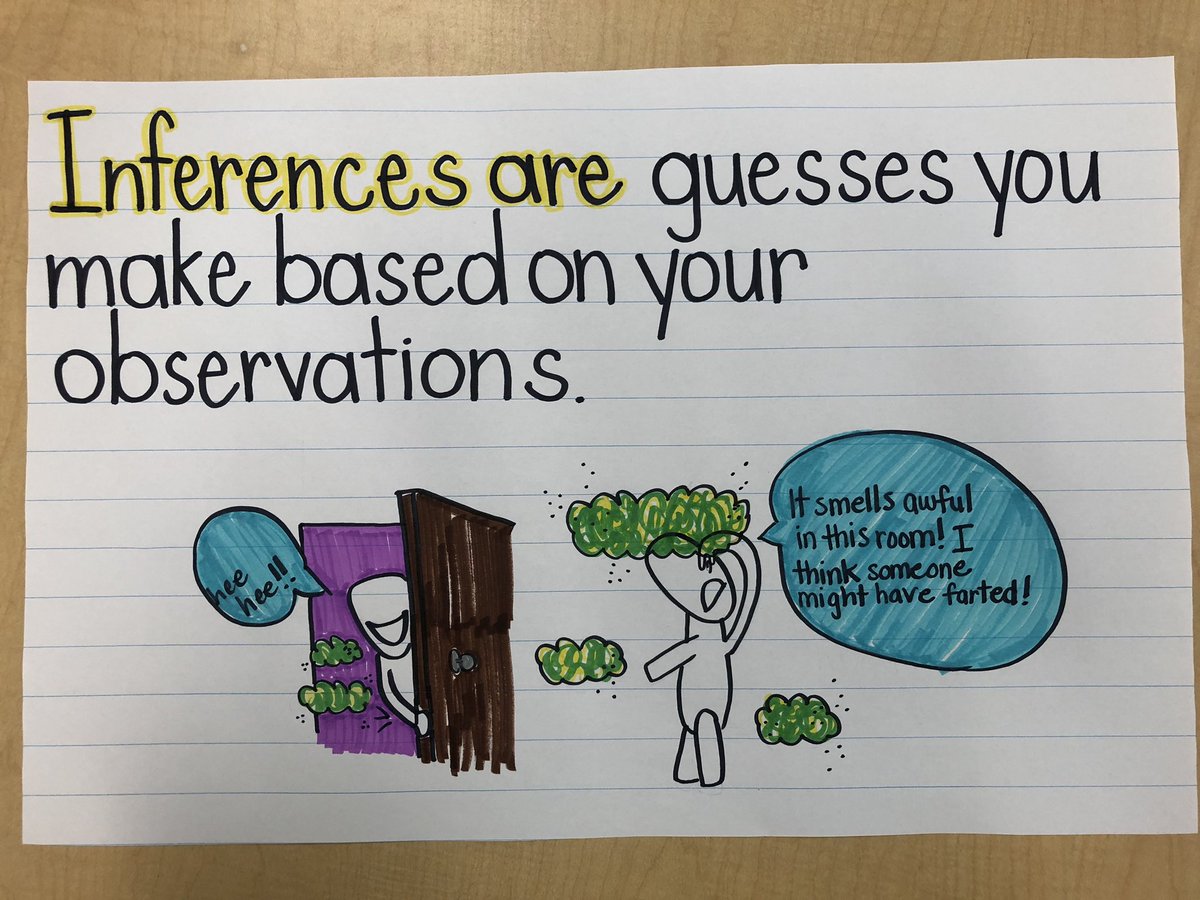 Inferences are guesses you
make based on your
observations.
hee
hee!!
It smells awful
in this room! I
think someone
might have farted!